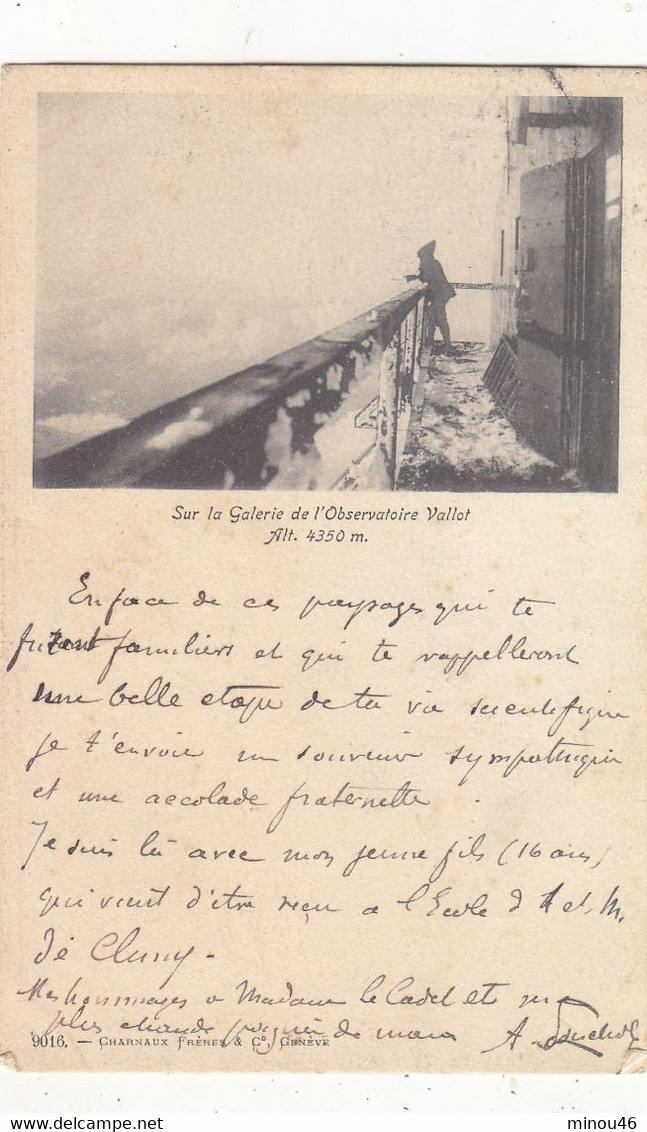 Sur la Galerie de l'Observatoire Vallot
Alt. 4350 m.
En face de ces paysages qui te
furent familiers et qui te rappelleront
une belle etape de ta vie scientifique
je t'envoie un souvenir sympathique
et une accolade fraternelle.
Je suis là avec mon jeune fils (16 ans)
qui vient d'être reçu a l'Ecole d'A et M.
de Cluny.
Mes hommages a Madame le Cadet et ma
plus chaude poignée de main A.
9016. — CHARNAUX FRÈRES & Cº, GENÈVE
delcampe.net
minou46